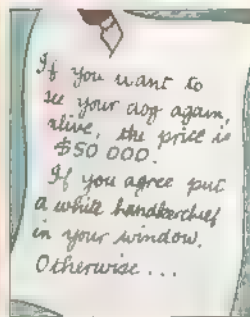 If you want to
see your dog again,
alive, the price is
$50 000.
If you agree put
a white handkerchief
in your window.
Otherwise...